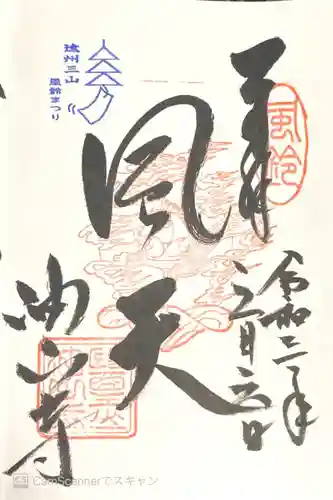 奉拝
風鈴
令和二年
六月六日
風天
油山寺
遠州三山
風鈴まつり
CS CamScannerでスキャン